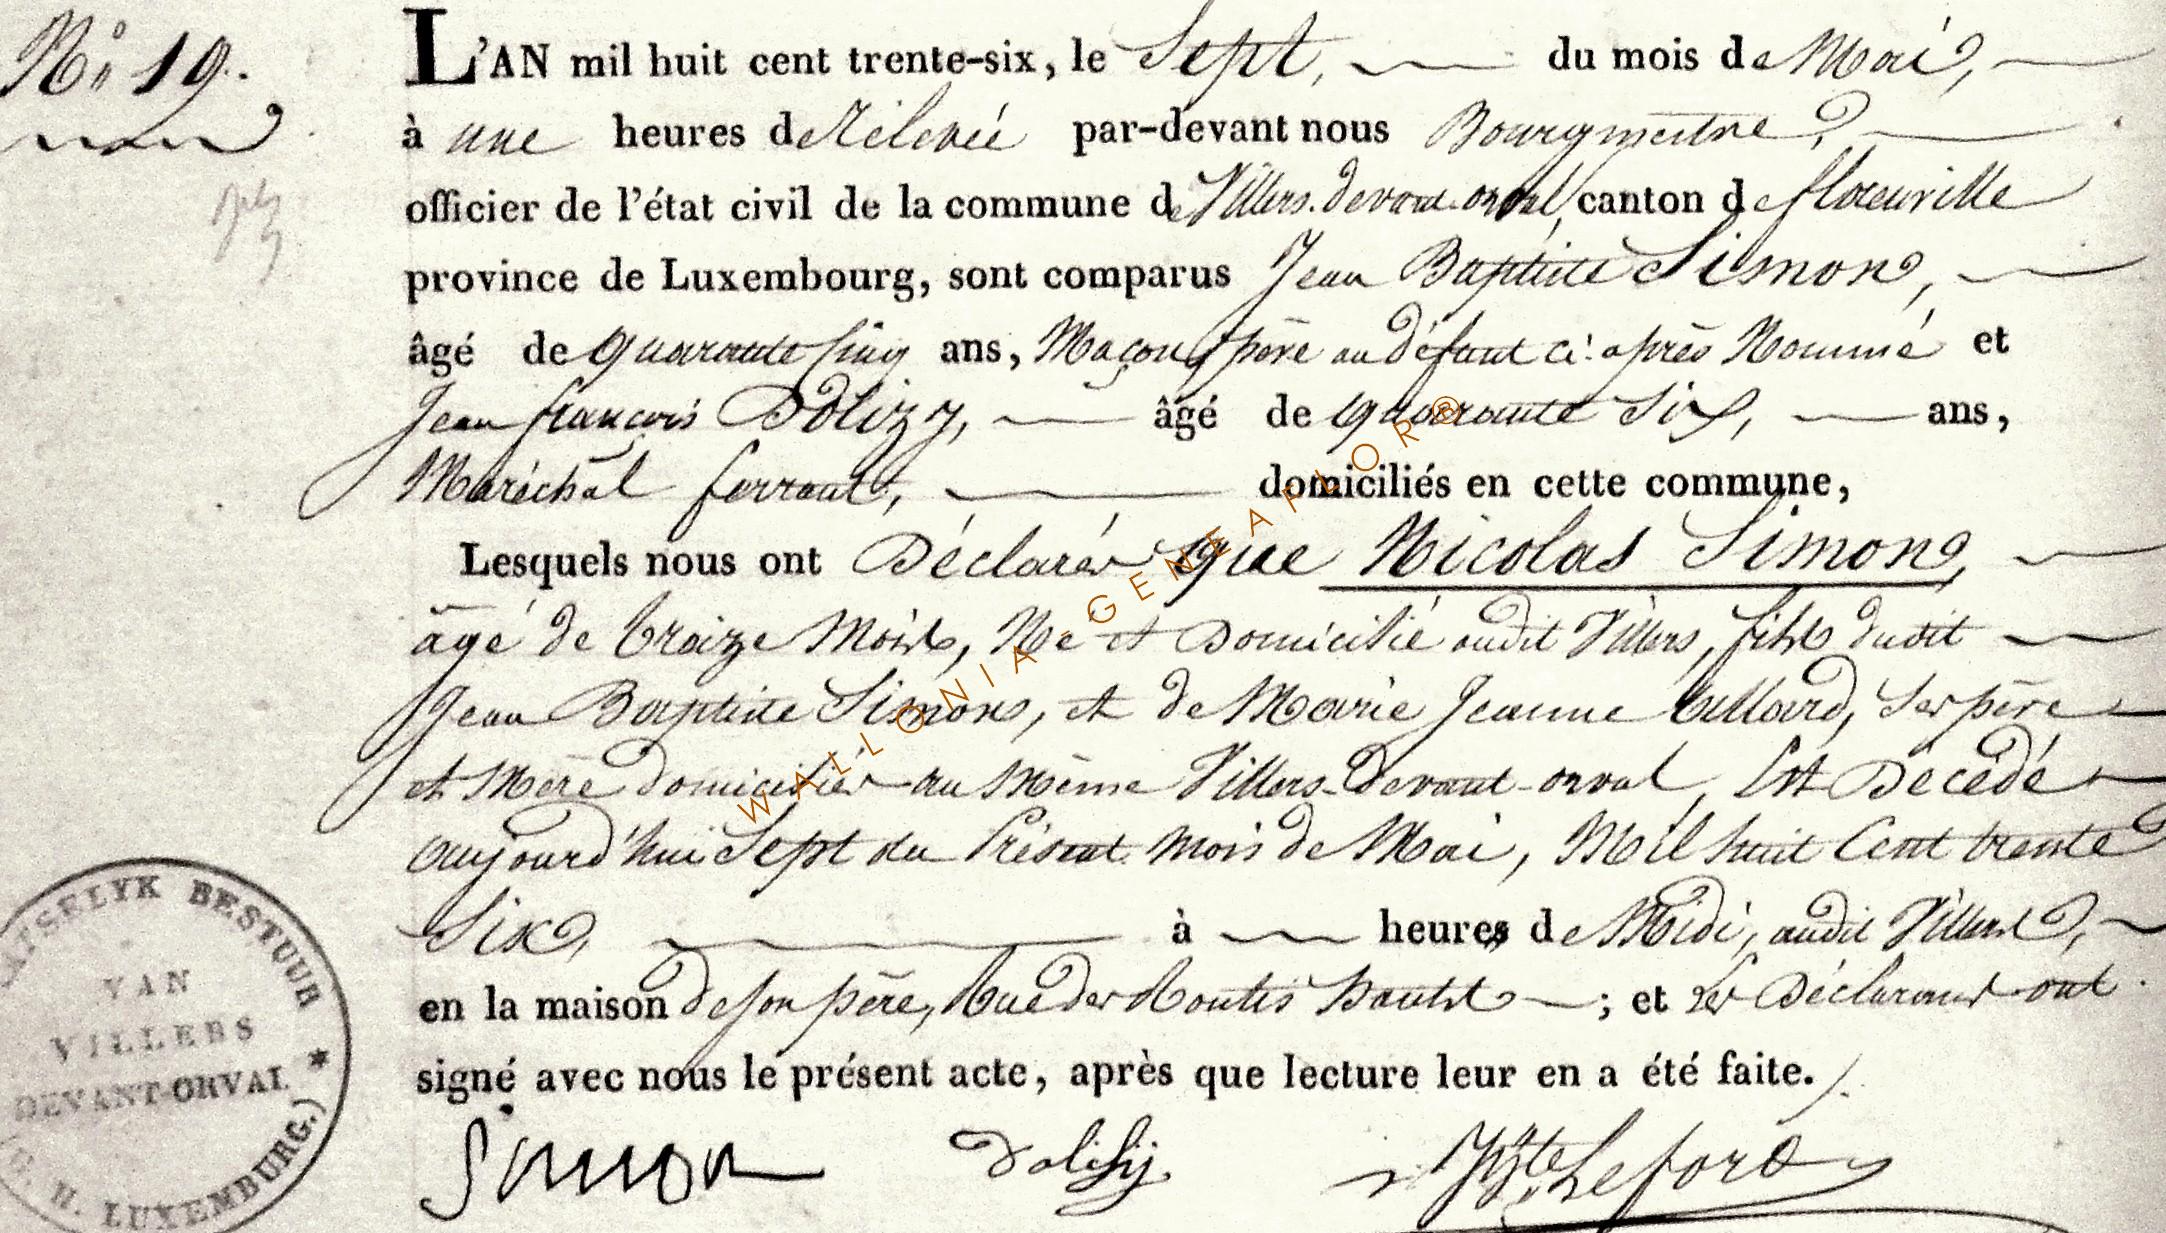 N° 19.
L'AN mil huit cent trente-six, le Sept, du mois de Mai,
à une heures de rélevée par-devant nous Bourgmestre,
officier de l'état civil de la commune de Villers-devant-orval, canton de florenville
province de Luxembourg, sont comparus Jean Baptiste Simon,
âgé de quarante cinq ans, Maçon, père au défunt ci-après Nommé et
Jean françois Dolizy, âgé de quarante Six, ans,
Maréchal ferrant, domiciliés en cette commune,
Lesquels nous ont Déclarés que Nicolas Simon,
âgé de treize Mois, Né et Domicilié audit Villers, fils dudit
Jean Baptiste Simon, et de Marie Jeanne Allard, Ses père
et Mère domiciliés au Même Villers-devant-orval, Est Décédé
aujourd'hui Sept du Présent Mois de Mai, Mil huit Cent trente
Six, à heures de Midi, audit Villers,
en la maison de son père, Rue des hauts; et les Déclarans ont
signé avec nous le présent acte, après que lecture leur en a été faite.
Simon dolisy Lefort
PLAATSELYK BESTUUR
VAN
VILLERS
DEVANT-ORVAL *
(G. H. LUXEMBURG.)
WALLONIA-GENEAFLOR®